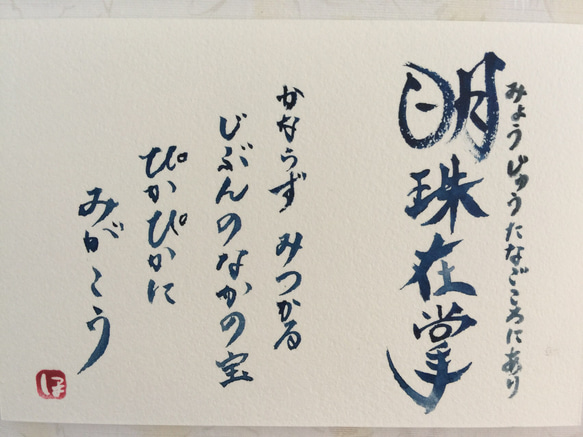 みょうじゅうたなごころにあり
明珠在掌
かならず みつかる
じぶんのなかの宝
ぴかぴかに
みがこう
ほ